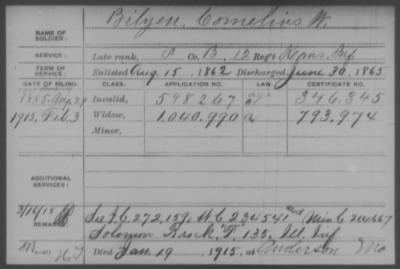 Bilyeu, Cornelius W.
NAME OF SOLDIER:
SERVICE: Late rank, P Co. B, 12 Reg't Kans. Inf
TERM OF SERVICE: Enlisted Aug 15, 1862 Discharged June 30, 1865
DATE OF FILING. CLASS. APPLICATION NO. LAW. CERTIFICATE NO.
1885 Aug 29 Invalid, 548267 346.845
1915, Feb. 3 Widow, 1.040.990 793.974
Minor,
ADDITIONAL SERVICES:
3/16/15 See I.C. 272,159, W.C. 234541 and Min C 264667
REMARKS: Solomon Brock, "F", 135, Ill. Inf
Died Jan 19 1915, at Anderson Mo